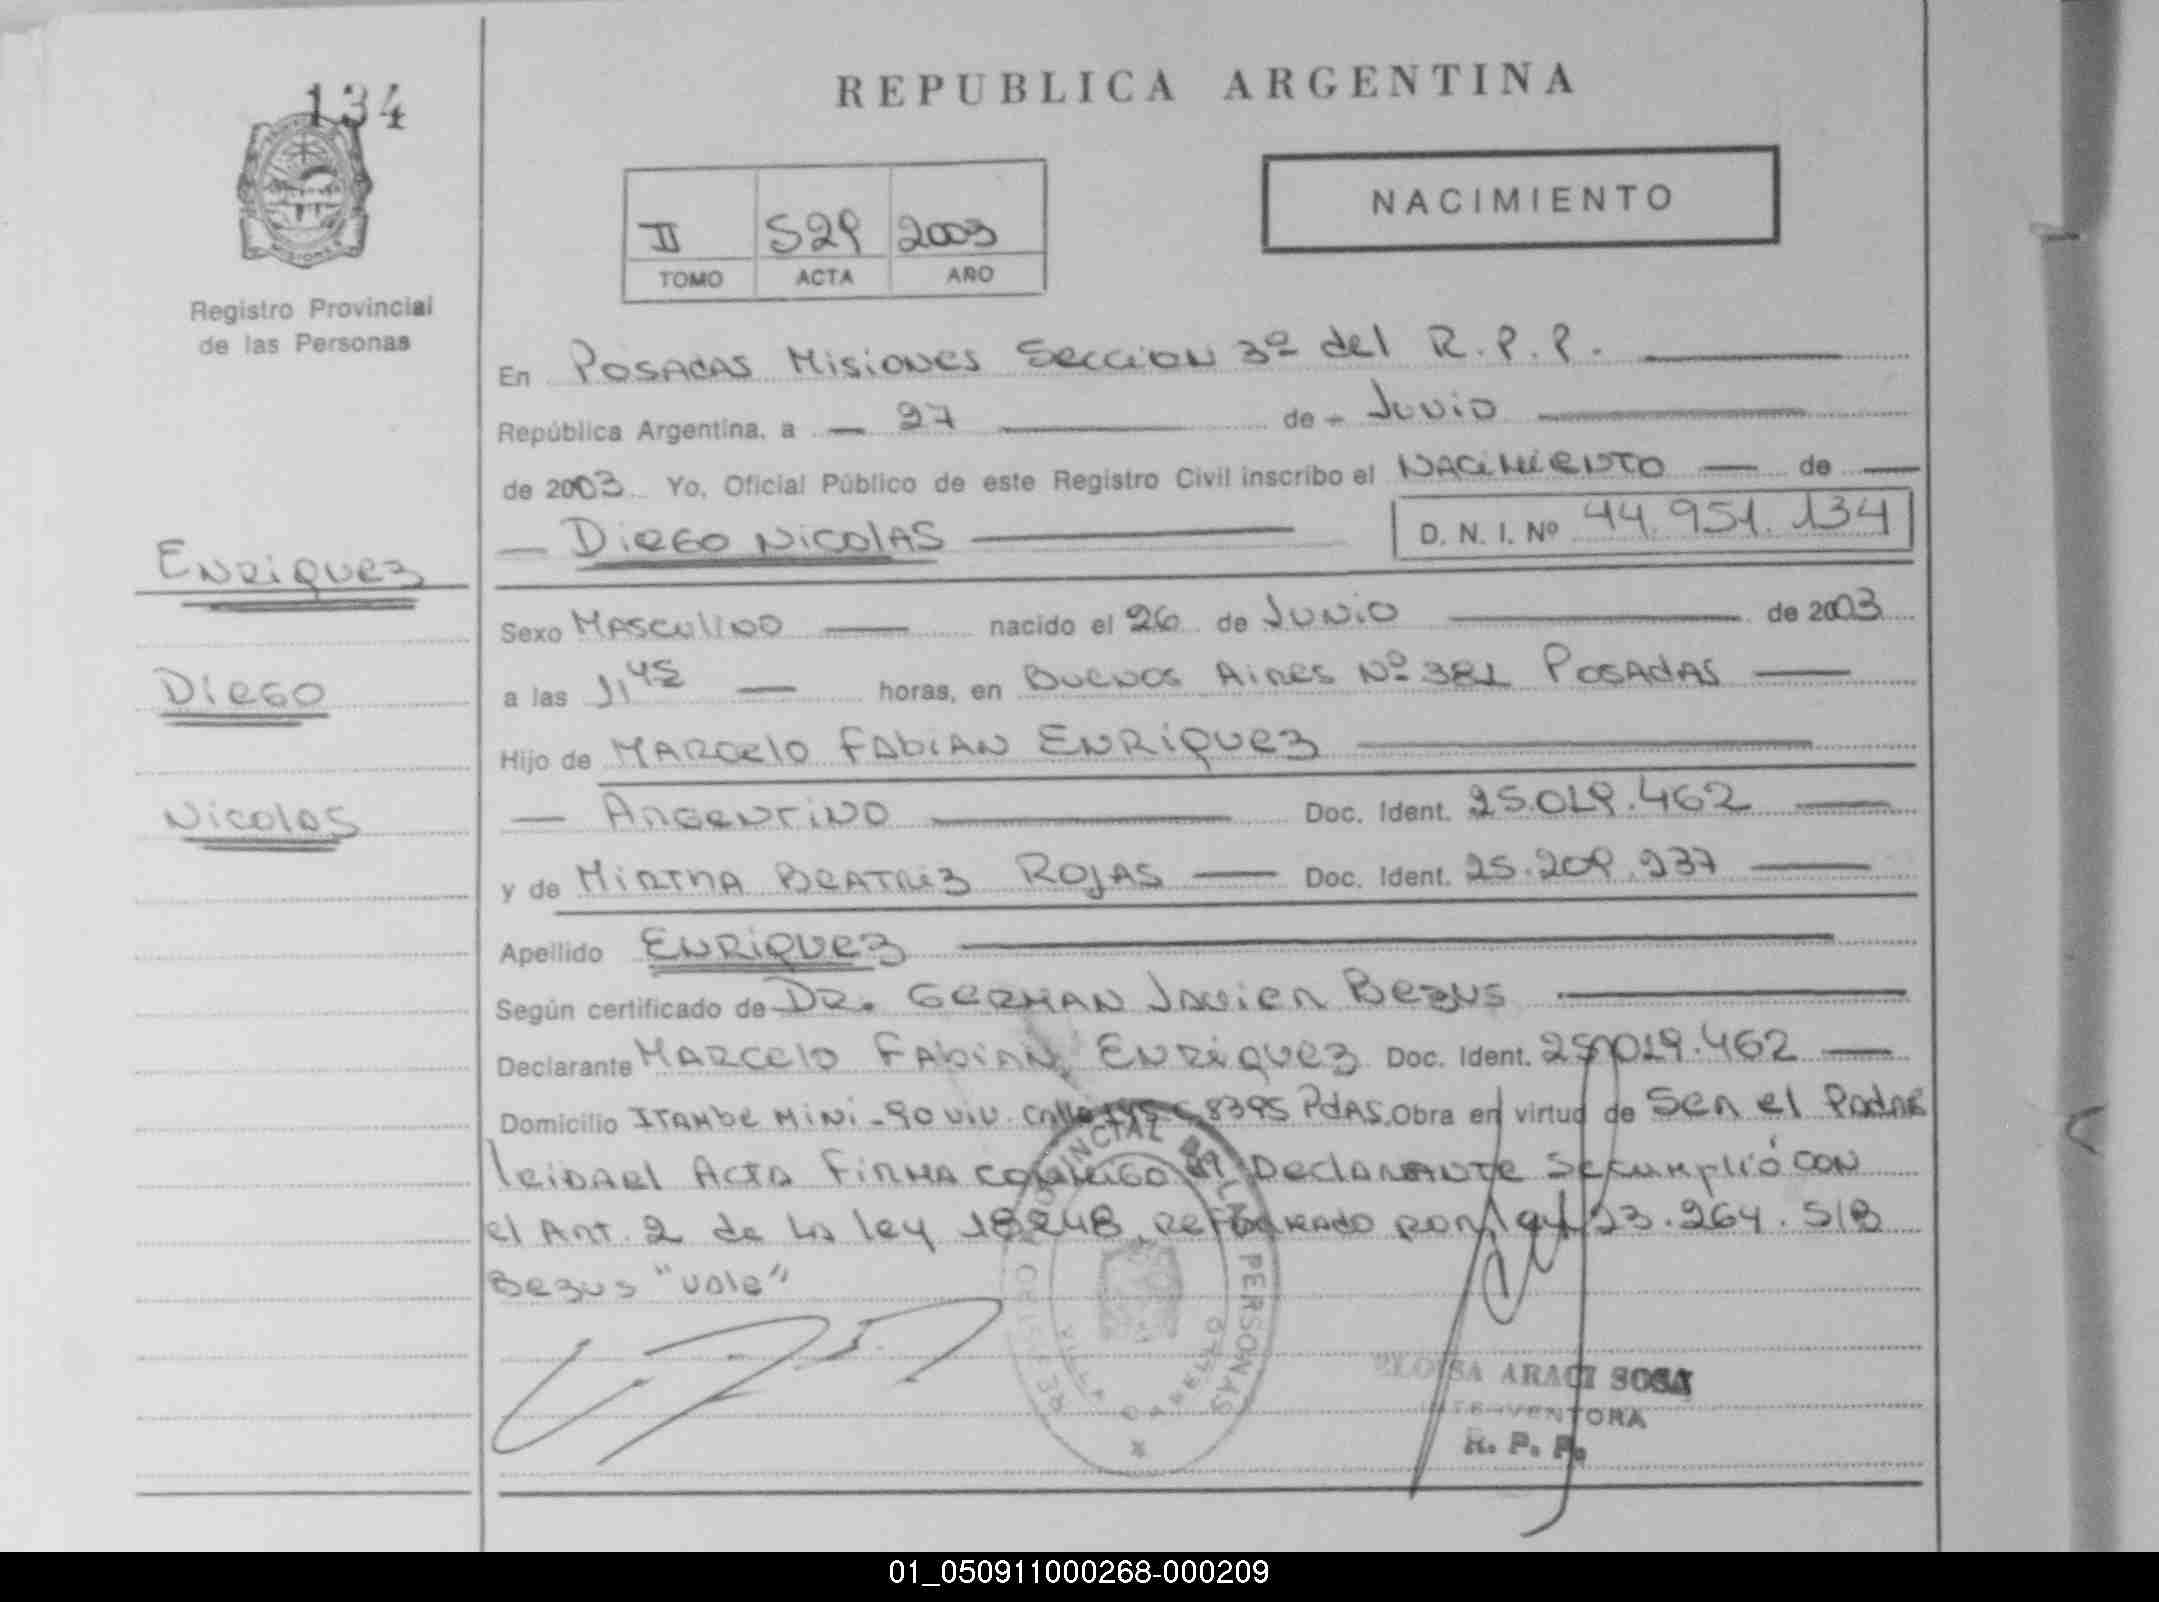 134
Registro Provincial
de las Personas
Enriquez
Diego
Nicolas
REPUBLICA ARGENTINA
NACIMIENTO
II 529 2003
TOMO ACTA AÑO
En Posadas Misiones Seccion 3º del R.P.P.
República Argentina, a 27 de Junio
de 2003 Yo, Oficial Público de este Registro Civil inscribo el Nacimiento de
Diego Nicolas D. N. I. Nº 44.951.134
Sexo Masculino nacido el 26 de Junio de 2003
a las 11 45 horas, en Buenos Aires Nº 381 Posadas
Hijo de Marcelo Fabian Enriquez
Argentino Doc. Ident. 25.019.462
y de Mirtha Beatriz Rojas Doc. Ident. 25.209.237
Apellido Enriquez
Según certificado de Dr. German Javier Bezus
Declarante Marcelo Fabian Enriquez Doc. Ident. 25.019.462
Domicilio Itambe Mini - 90 viv. Calle 8395 Pdas. Obra en virtud de Ser el Padre
leida el Acta Firma conmigo el Declarante Se cumplió con
el Art. 2 de la ley 18248 Reformado por ley 23.264. S/B
Bezus "vale"
REGISTRO PROVINCIAL DE LAS PERSONAS
VILLA CABELLO
ELOISA ARACI SOSA
INTERVENTORA
R. P. P.
01_050911000268-000209